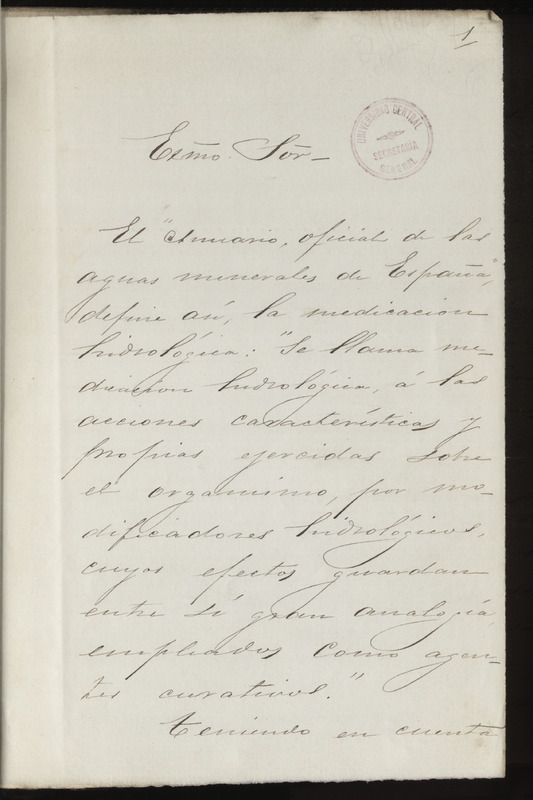 1
UNIVERSIDAD CENTRAL
SECRETARIA
GENERAL
Exmo. Sôr
El "Anuario, oficial de las
aguas minerales de España",
define así, la medicacion
hidrológica: "Se llama me-
dicacion hidrológica, á las
acciones características y
propias ejercidas sobre
el organismo, por mo-
dificadores hidrológicos,
cuyos efectos guardan
entre sí gran analogía
empleados como agen-
tes curativos."
Teniendo en cuenta